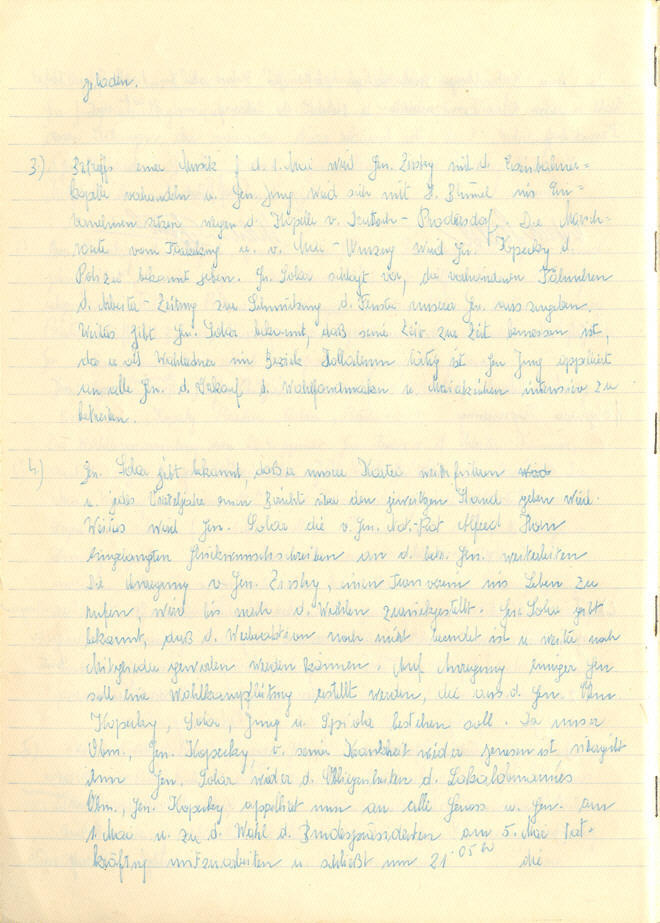 geladen.
3.) Betreffs einer Musik f. d. 1. Mai wird Gen. Zirsky mit d. Eisenbahner=
kapelle verhandeln u. Gen. Jung wird sich mit H. Blümel ins Ein-
vernehmen setzen wegen d. Kapelle v. Deutsch-Brodersdorf. Die Marsch-
route vom Fackelzug u. v. Mai-Umzug wird Gen. Kopecky d.
Polizei bekannt geben. Gen. Solar schlägt vor, die vorhandenen Fähnchen
d. Arbeiter-Zeitung zur Schmückung d. Fenster unserer Gen. auszugeben.
Weiters gibt Gen. Solar bekannt, daß seine Zeit zur Zeit bemessen ist,
da er als Wahlredner im Bezirk Hollabrunn tätig ist. Gen. Jung appelliert
an alle Gen. d. Verkauf d. Wahlfondmarken u. Maiabzeichen intensiv zu
betreiben.
4.) Gen. Solar gibt bekannt, daß er unsere Kartei weiterführen wird
u. jedes Vierteljahr einen Bericht über den jeweiligen Stand geben wird.
Weiters wird Gen. Solar die v. Gen. Nat.-Rat Alfred Horn
eingelangten Glückwunschschreiben an d. betr. Gen. weiterleiten
Die Anregung v. Gen. Zirsky, einen Turnverein ins Leben zu
rufen, wird bis nach d. Wahlen zurückgestellt. Gen. Solar gibt
bekannt, daß d. Werbeaktion noch nicht beendet ist u. weiter noch
Mitglieder geworben werden können. Auf Anregung einiger Gen.
soll eine Wahlkampfleitung erstellt werden, die aus d. Gen. Obm.
Kopecky, Solar, Jung u. bestehen soll. Da unser
Obm., Gen. Kopecky, v. seiner Krankheit wieder genesen ist, übergibt
ihm Gen. Solar wieder d. Obliegenheiten d. Lokalobmannes
Obm., Gen. Kopecky appelliert nun an alle Genoss. u. Gen. am
1. Mai u. zu d. Wahl d. Bundespräsidenten am 5. Mai tat-
kräftig mitzuarbeiten u. schließt um 21.05 h die